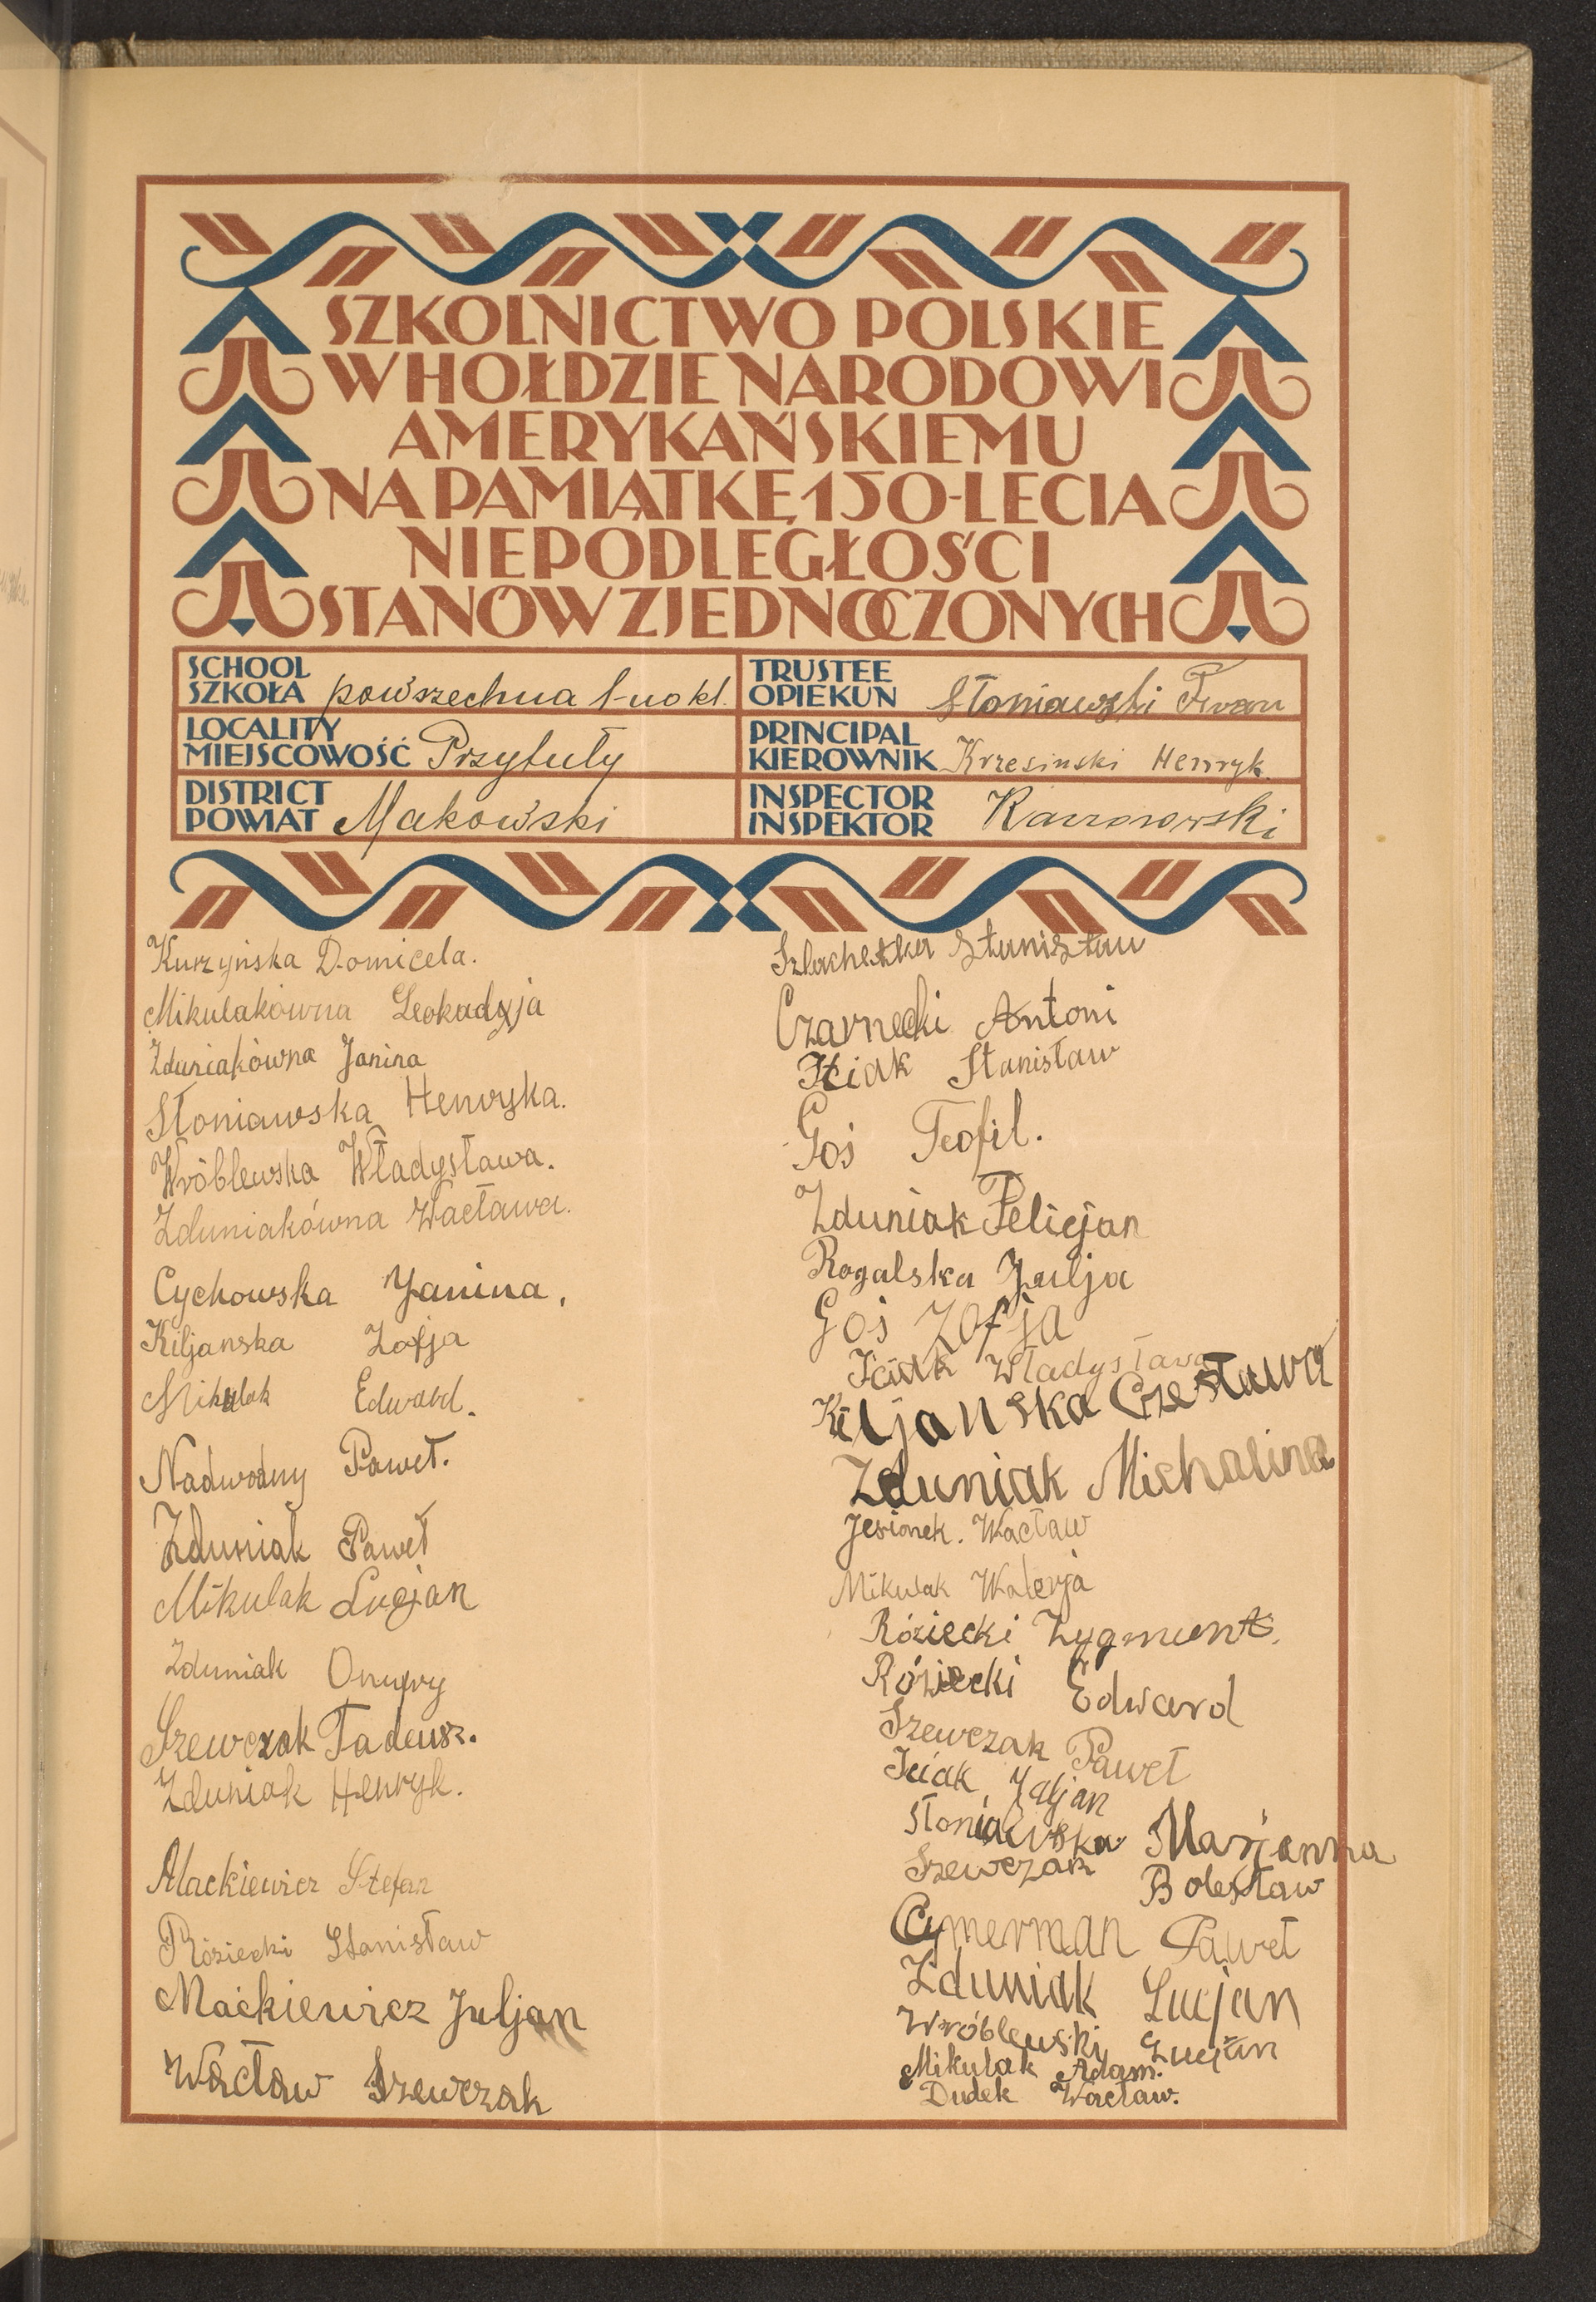 SZKOLNICTWO POLSKIE
W HOŁDZIE NARODOWI
AMERYKAŃSKIEMU
NA PAMIĄTKĘ 150-LECIA
NIEPODLEGŁOŚCI
STANÓW ZJEDNOCZONYCH
SCHOOL
SZKOŁA powszechna 1-no kl.
LOCALITY
MIEJSCOWOŚĆ Przytuły
DISTRICT
POWIAT Makowski
TRUSTEE
OPIEKUN Słoniawski
PRINCIPAL
KIEROWNIK Krzesinski Henryk
INSPECTOR
INSPEKTOR
Kurzyńska Domicela.
Mikulakówna Leokadyja
Zduniakówna Janina
Słoniawska Henryka.
Wróblewska Władysława.
Zduniakówna Wacława.
Cychowska Janina,
Kiljanska Zofja
Mikulak Edward.
Nadwodny Paweł.
Zduniak Paweł
Mikulak Lucjan
Zduniak Onufry
Szewczak Tadeusz.
Zduniak Henryk.
Mackiewicz Stefan
Róziecki Stanisław
Maćkiewicz Juljan
Wacław Szewczak
Szlachetka Stanisław
Czarnecki Antoni
Iciak Stanisław
Goś Teofil.
Zduniak Felicjan
Rogalska Julja
Goś Zofja
Iciak Władysława
Kiljanska Czesława
Zduniak Michalina
Jesionek. Wacław
Mikulak Walerja
Róziecki Zygmunt.
Róziecki Edward
Szewczak Paweł
Iciak Juljan
Słoniawska Marjanna
Szewczak Bolesław
Cymerman Paweł
Zduniak Lucjan
Wróblewski Lucjan
Mikulak Adam.
Dudek Wacław.